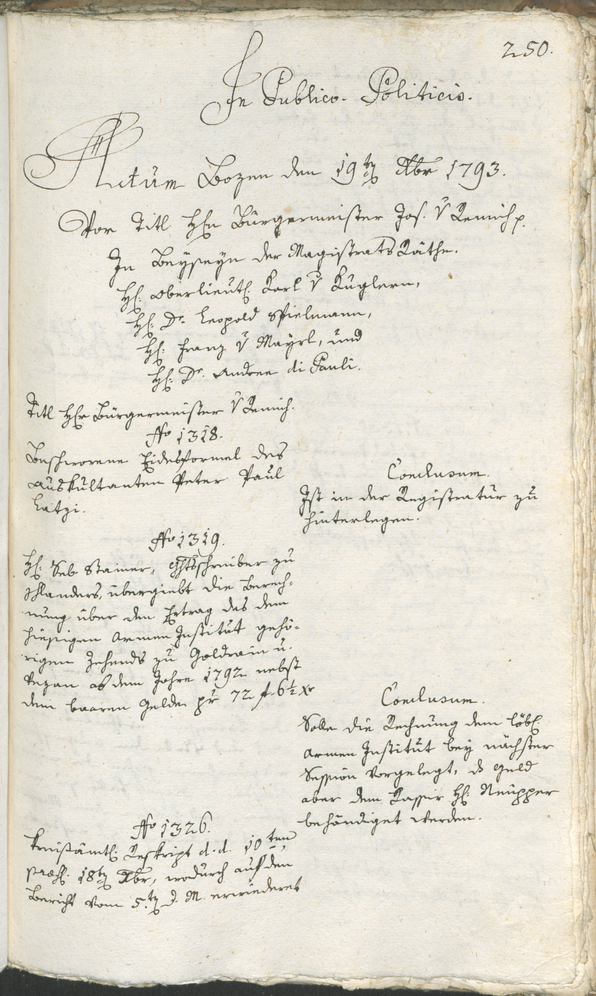 250.
In Publico-Politicis.
Actum Bozen den 19ten Xbr 1793.
Vor Titl Hhn Bürgermeister Jos. v Remich p.
In Beyseyn der Magistrats Räthe.
Hh: Oberlieut: Karl v Kuglern,
Hh: Dr. Leopold Spielmann,
Hh: Franz v Mayrl, und
Hh: Dr. Andree di Pauli.
Titl Hhr Bürgermeister v Remich.
No 1318.
Beschworene Eidesformel des
Auskultanten Peter Paul
Latzi.
Conclusum.
Ist in der Registratur zu
hinterlegen.
No 1319.
Hh: Seb. Steiner, Ghtsschreiber zu
Schlanders, übergiebt die Berech-
nung über den Ertrag des dem
hiesigen Armen Institut gehö-
rigen Zehends zu Goldrain u.
Vezan ab dem Jahre 1792 nebst
dem baaren Gelde pr 72 f 6½ xr
Conclusum.
Solle die Rechnung dem löbl:
Armen Institut bey nächster
Session vorgelegt, ds Geld
aber dem Kassir Hh: Neupper
behändiget werden.
No 1326.
Kreisämtl: Reskript d.d. 10ten,
18ten Xbr, wodurch auf den
Bericht vom 5ten d. M. erwiedert